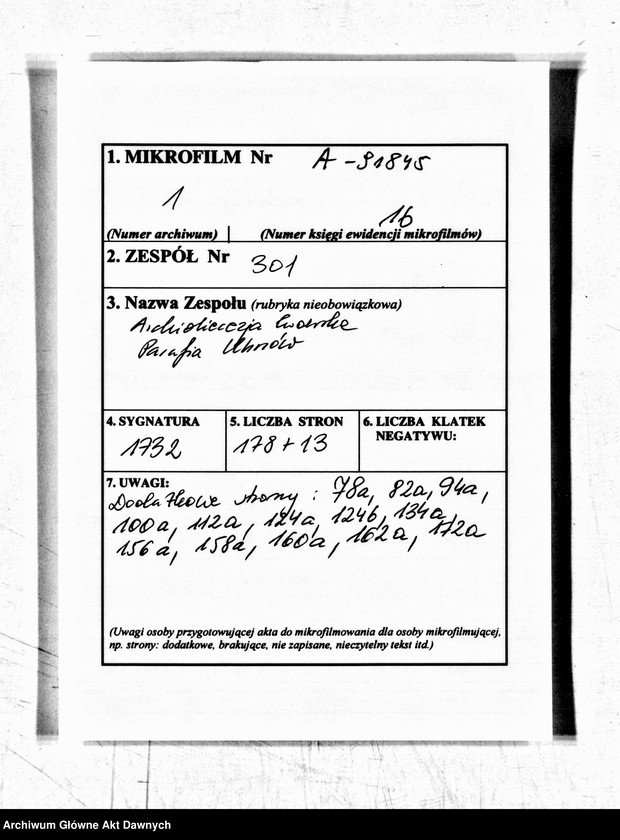 1. MIKROFILM Nr A-91845
1 16
(Numer archiwum) (Numer księgi ewidencji mikrofilmów)
2. ZESPÓŁ Nr 301
3. Nazwa Zespołu (rubryka nieobowiązkowa)
Archidiecezja Lwowska
Parafia Uhnów
4. SYGNATURA 5. LICZBA STRON 6. LICZBA KLATEK
NEGATYWU:
1732 178+13
7. UWAGI:
Dodatkowe strony: 78a, 82a, 94a,
100a, 112a, 124a, 124b, 134a,
156a, 158a, 160a, 162a, 172a
(Uwagi osoby przygotowującej akta do mikrofilmowania dla osoby mikrofilmującej,
np. strony: dodatkowe, brakujące, nie zapisane, nieczytelny tekst itd.)
Archiwum Główne Akt Dawnych